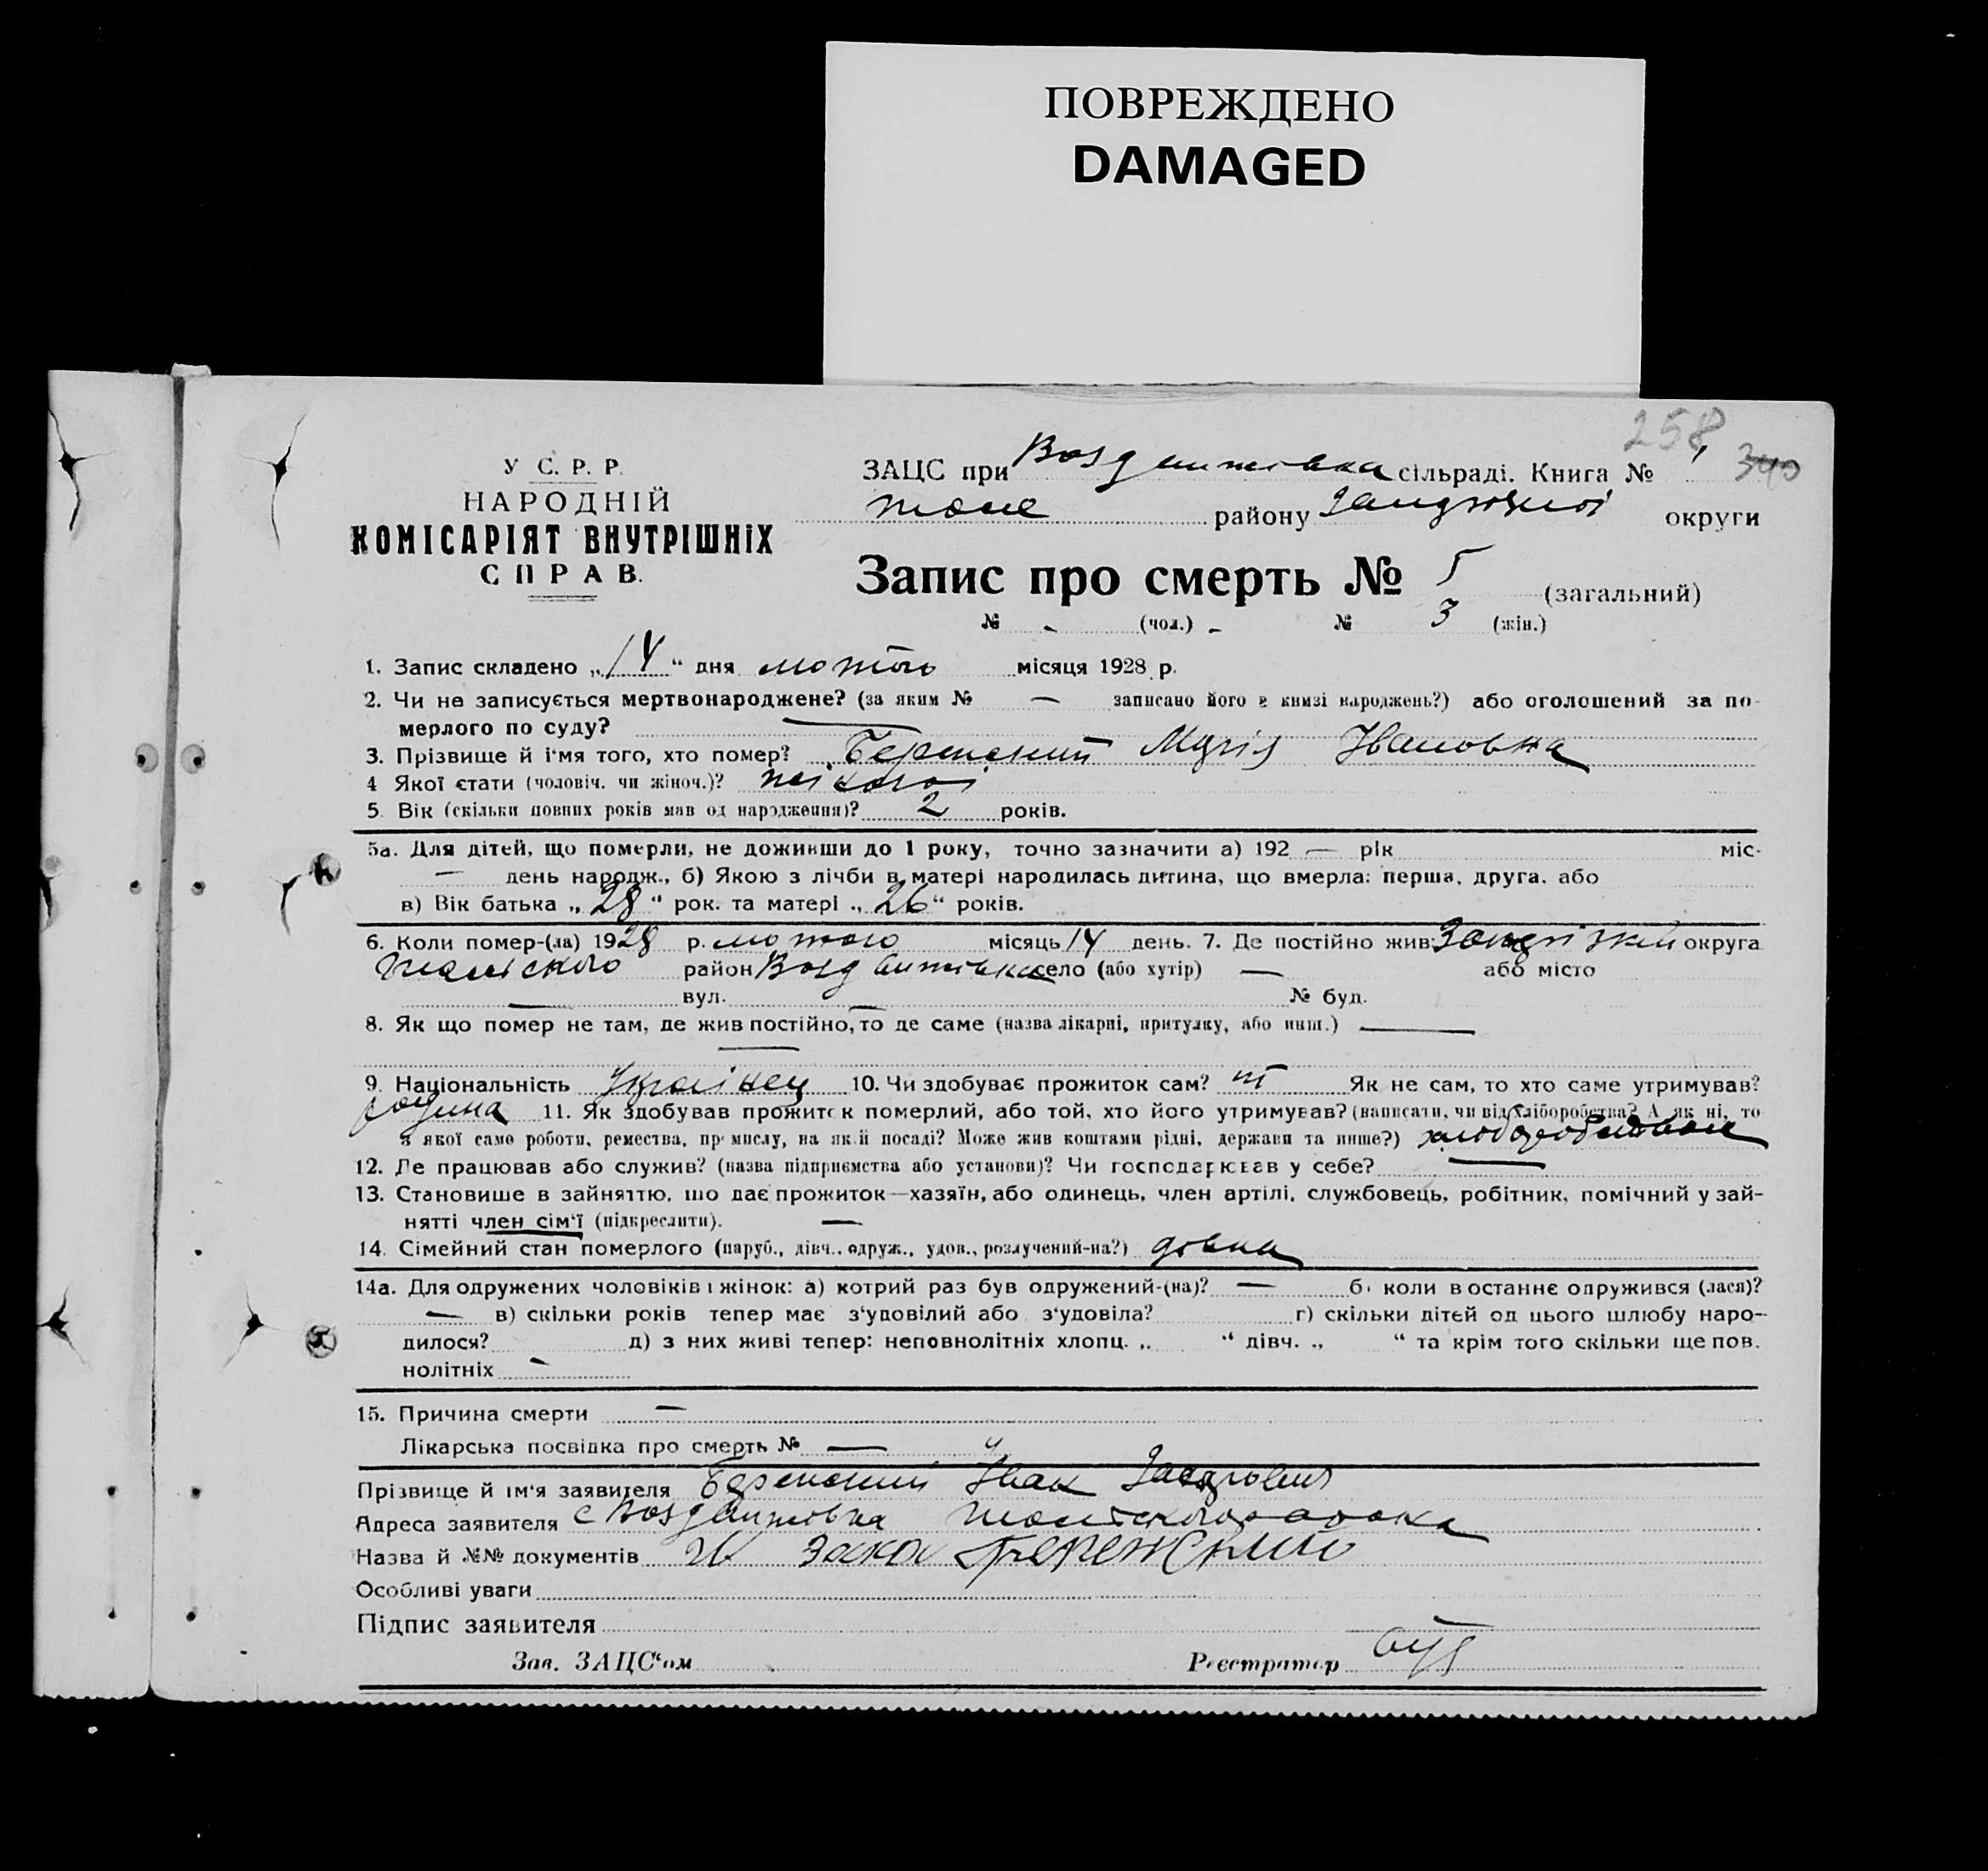 ПОВРЕЖДЕНО
DAMAGED
258
340
У С. Р. Р.
НАРОДНІЙ
КОМІСАРІЯТ ВНУТРІШНІХ
СПРАВ.
ЗАЦС при сільраді. Книга №
району округи
Запис про смерть № 5 (загальний)
№ - (чол.) - № 3 (жін.)
1. Запис складено „14“ дня лютого місяця 1928 р.
2. Чи не записується мертвонароджене? (за яким № — записано його в книзі народжень?) або оголошений за по-
мерлого по суду?
3. Прізвище й ім'я того, хто помер? Марія Івановна
4 Якої статі (чоловіч. чи жіноч.)?
5. Вік (скільки повних років мав од народження)? 2 років.
5а. Для дітей, що померли, не доживши до 1 року, точно зазначити а) 192 — рік міс-
— день народж., б) Якою з лічби в матері народилась дитина, що вмерла: перша, друга, або
в) Вік батька „28“ рок. та матері „26“ років.
6. Коли помер-(ла) 1928 р. лютого місяць 14 день. 7. Де постійно жив округа
район село (або хутір) — або місто
— вул. — № буд.
8. Як що помер не там, де жив постійно, то де саме (назва лікарні, притулку, або инш.) —
—
9. Національність Українец 10. Чи здобуває прожиток сам? ні Як не сам, то хто саме утримував?
родина 11. Як здобував прожиток померлий, або той, хто його утримував? (написати, чи від хліборобства? А як ні, то
з якої саме роботи, ремества, промислу, на якій посаді? Може жив коштами рідні, держави та инше?)
12. Де працював або служив? (назва підприємства або установи)? Чи господарював у себе? —
13. Становище в зайняттю, що дає прожиток—хазяїн, або одинець, член артілі, службовець, робітник, помічний у зай-
нятті член сім'ї (підкреслити). —
14. Сімейний стан померлого (паруб., дівч., одруж., удов., розлучений-на?)
14а. Для одружених чоловіків і жінок: а) котрий раз був одружений-(на)? — б) коли востаннє одружився (лася)?
— в) скільки років тепер має з'удовілий або з'удовіла? г) скільки дітей од цього шлюбу наро-
дилося? д) з них живі тепер: неповнолітніх хлопц. „ “ дівч. „ “ та крім того скільки ще пов.
нолітніх -
15. Причина смерти —
Лікарська посвідка про смерть № —
Прізвище й ім'я заявителя Іван
Адреса заявителя с
Назва й №№ документів
Особливі уваги
Підпис заявителя
Зав. ЗАЦС'ом Реєстратор